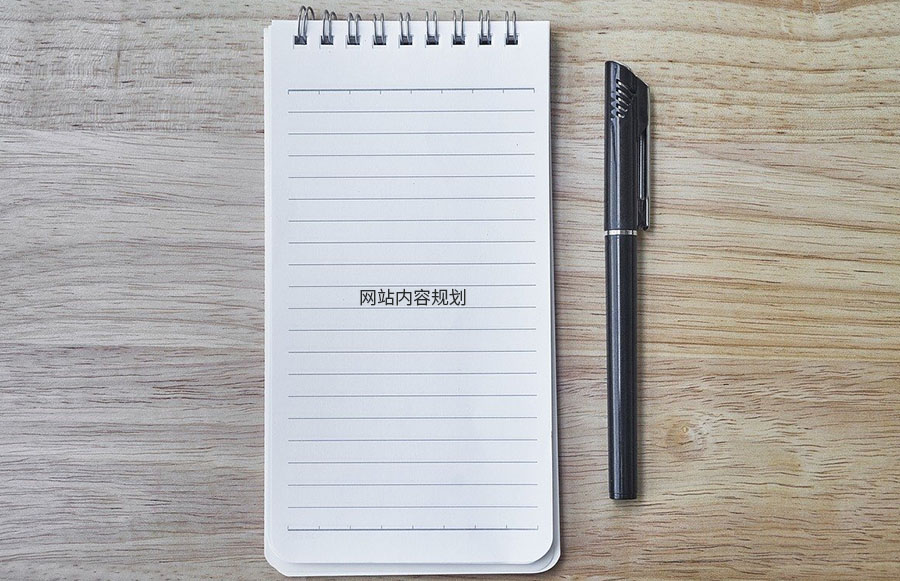 网站内容规划